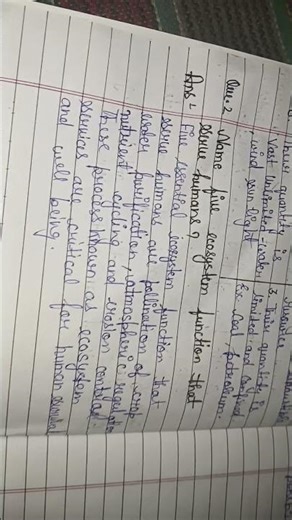 their quantity is
vast unlimited-water,
wind, sun light
3. Their quantity is
limited and confined
Ex. Coal, petroleum.
Que. 2 Name five ecosystem function that
serve humans?
Ans - Five essential ecosystem function that
serve humans are pollination of crop
water purification, atmospheric regulation
nutrient cycling and erosion control.
These process known as ecosystem
services are critical for human survival
and well being.